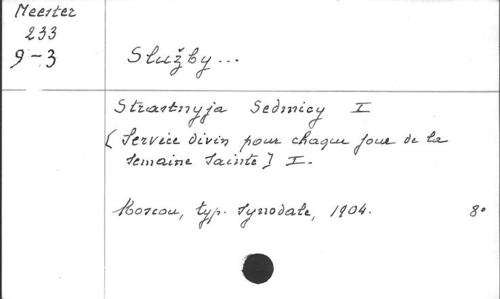 Meester
233
9-3
Služby...
Strastnyja Sedmicy I
[Service divin pour chaque jour de la
Semaine Sainte] I.
Moscou, typ. Synodale, 1904. 8°